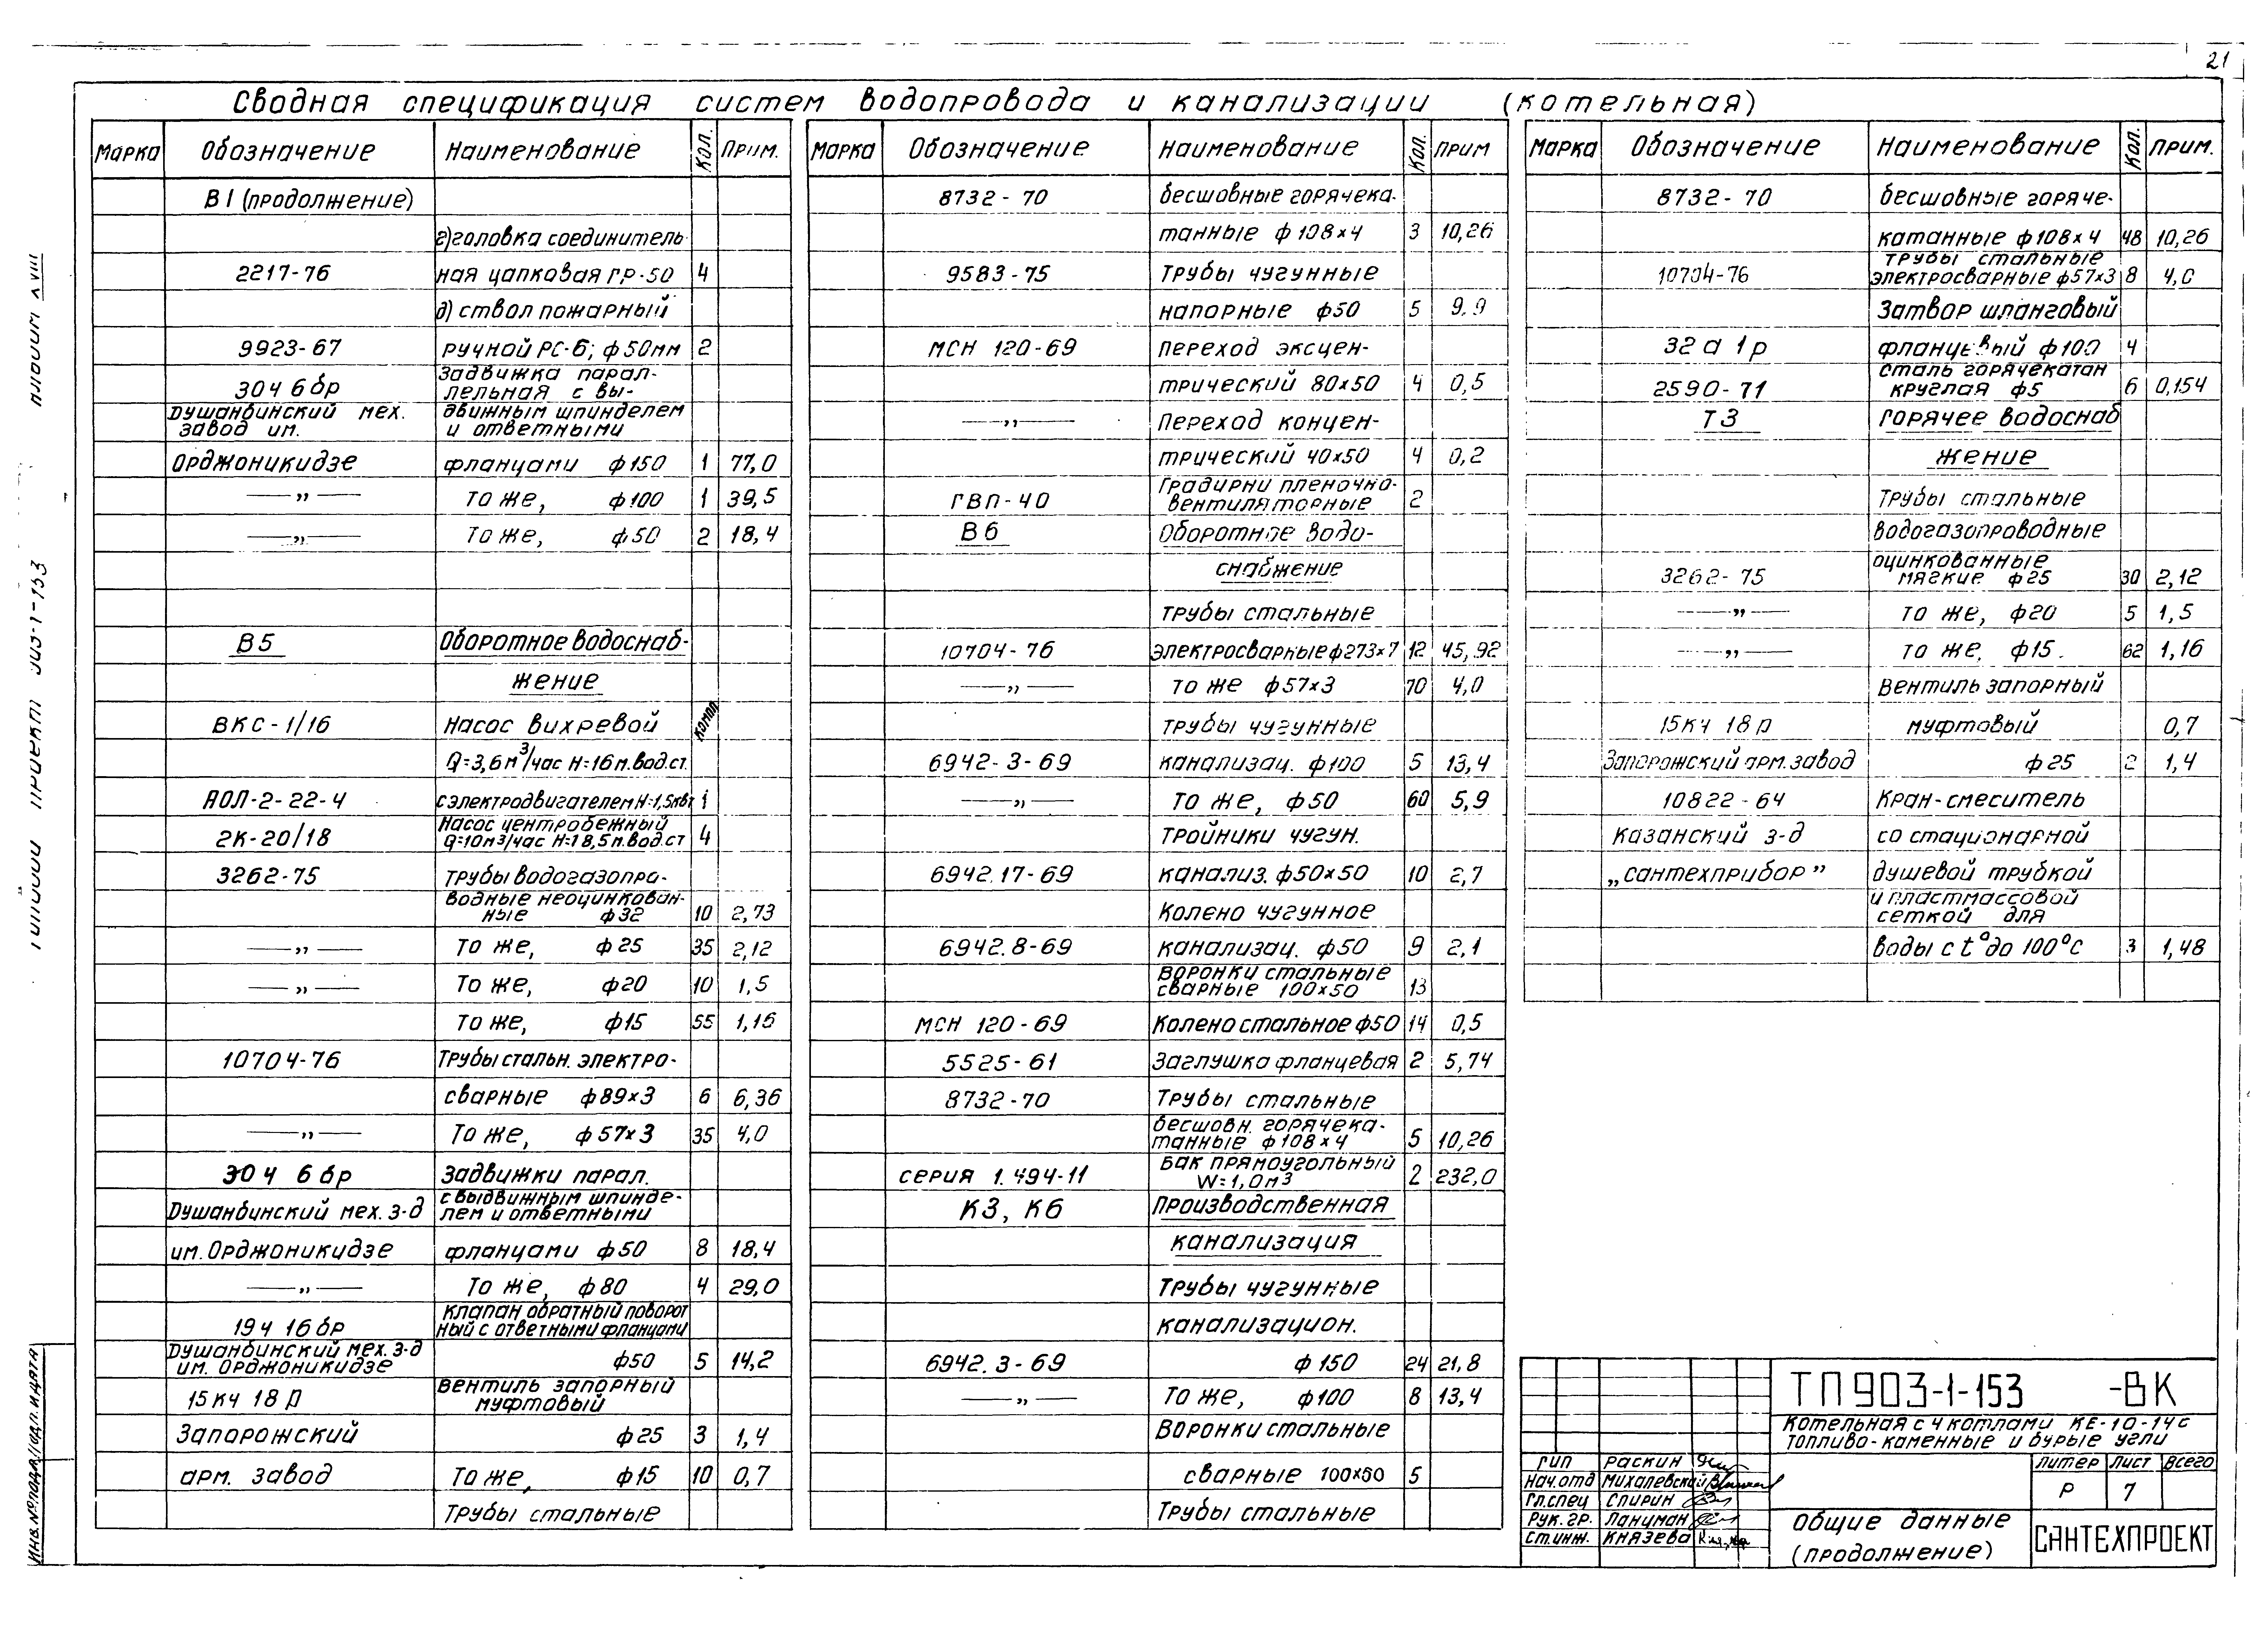 21
Сводная спецификация систем водопровода и канализации (котельная)
Марка Обозначение Наименование Кол. Прим.
В1 (продолжение)
г) головка соединитель-
2217-76 ная цапковая ГР-50 4
д) ствол пожарный
9923-67 ручной РС-Б; ф50мм 2
Задвижка парал-
30ч 6бр лельная с вы-
Душанбинский мех. движным шпинделем
завод им. и ответными
Орджоникидзе фланцами ф150 1 77,0
—„— То же, ф100 1 39,5
—„— То же, ф50 2 18,4
В5 Оборотное водоснаб-
жение
ВКС-1/16 Насос вихревой компл
Q=3,6м³/час Н=16м.вод.ст.
АОЛ-2-22-4 с электродвигателем N=1,5квт 1
Насос центробежный
2К-20/18 Q=10м³/час Н=18,5м.вод.ст 4
3262-75 Трубы водогазопро-
водные неоцинкован-
ные ф32 10 2,73
—„— То же, ф25 35 2,12
—„— То же, ф20 10 1,5
То же, ф15 55 1,16
10704-76 Трубы стальн. электро-
сварные ф89×3 6 6,36
—„— То же, ф57×3 35 4,0
30ч 6бр Задвижки парал.
с выдвижным шпинде-
Душанбинский мех. з-д лем и ответными
им. Орджоникидзе фланцами ф50 8 18,4
—„— То же, ф80 4 29,0
клапан обратный поворот
19ч 16бр ный с ответными фланцами
Душанбинский мех. з-д
им. Орджоникидзе ф50 5 14,2
15кч 18р Вентиль запорный
муфтовый
Запорожский ф25 3 1,4
арм. завод То же, ф15 10 0,7
Трубы стальные
Марка Обозначение Наименование Кол. Прим
8732-70 бесшовные горячека-
танные ф108×4 3 10,26
9583-75 Трубы чугунные
напорные ф50 5 9.9
МСН 120-69 Переход эксцен-
трический 80×50 4 0,5
—„— Переход концен-
трический 40×50 4 0,2
Градирни пленочно-
ГВП-40 вентиляторные 2
В6 Оборотное водо-
снабжение
Трубы стальные
10704-76 электросварные ф273×7 12 45,92
—„— То же ф57×3 70 4,0
Трубы чугунные
6942-3-69 канализац. ф100 5 13,4
—„— То же, ф50 60 5,9
Тройники чугун.
6942.17-69 канализ. ф50×50 10 2,7
Колено чугунное
6942.8-69 канализац. ф50 9 2,1
Воронки стальные
сварные 100×50 13
МСН 120-69 Колено стальное ф50 14 0,5
5525-61 Заглушка фланцевая 2 5,74
8732-70 Трубы стальные
бесшовн. горячека-
танные ф108×4 5 10,26
серия 1.494-11 Бак прямоугольный
W=1,0м³ 2 232,0
К3, К6 Производственная
канализация
Трубы чугунные
канализацион.
6942.3-69 ф150 24 21,8
—„— То же, ф100 8 13,4
Воронки стальные
сварные 100×50 5
Трубы стальные
Марка Обозначение Наименование Кол. Прим.
8732-70 бесшовные горяче-
катанные ф108×4 48 10,26
Трубы стальные
10704-76 электросварные ф57×3 8 4,0
Затвор шланговый
32а 1р фланцевый ф100 4
Сталь горячекатан
2590-71 круглая ф5 6 0,154
Т3 Горячее водоснаб
жение
Трубы стальные
водогазопроводные
оцинкованные
3262-75 мягкие ф25 30 2,12
—„— То же, ф20 5 1,5
—„— То же, ф15. 62 1,16
Вентиль запорный
15кч 18р муфтовый 0,7
Запорожский арм. завод ф25 2 1,4
10822-64 Кран-смеситель
Казанский з-д со стационарной
„сантехприбор” душевой трубкой
и пластмассовой
сеткой для
воды с t° до 100°С 3 1,48
ТП 903-1-153 -ВК
Котельная с 4 котлами КЕ-10-14с
Топливо-каменные и бурые угли
ГИП Раскин
Нач.отд Михалевский
Гл.спец Спирин
Рук.гр. Ланцман
Ст.инж. Князева
Литер Лист Всего
Р 7
Общие данные
(продолжение)
САНТЕХПРОЕКТ
Альбом XVIII
Типовой проект 903-1-153
Инв.№ подл. Подп. и дата